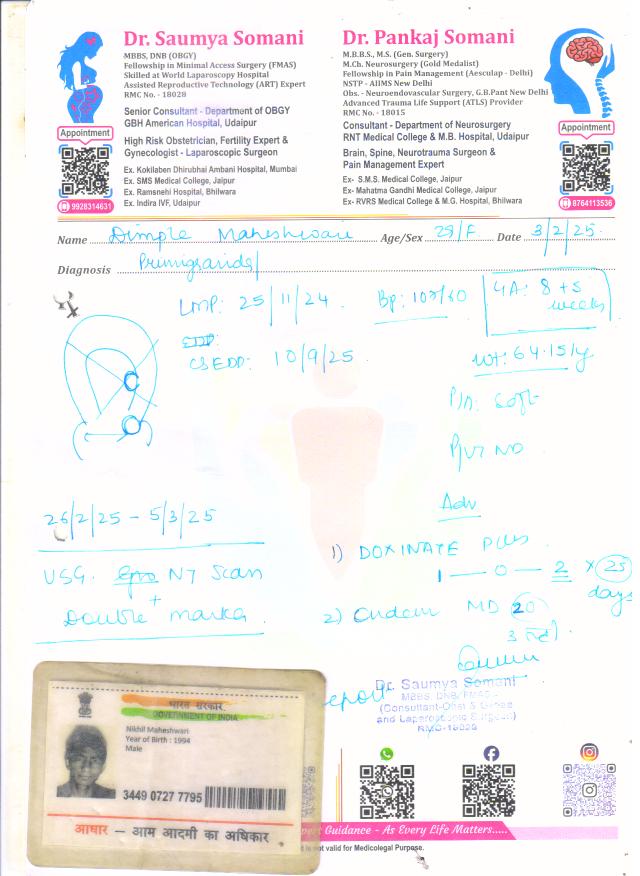 Dr. Saumya Somani
MBBS, DNB (OBGY)
Fellowship in Minimal Access Surgery (FMAS)
Skilled at World Laparoscopy Hospital
Assisted Reproductive Technology (ART) Expert
RMC No. - 18028
Senior Consultant - Department of OBGY
GBH American Hospital, Udaipur
High Risk Obstetrician, Fertility Expert &
Gynecologist - Laparoscopic Surgeon
Ex. Kokilaben Dhirubhai Ambani Hospital, Mumbai
Ex. SMS Medical College, Jaipur
Ex. Ramsnehi Hospital, Bhilwara
Ex. Indira IVF, Udaipur
Appointment
9928314631
Dr. Pankaj Somani
M.B.B.S., M.S. (Gen. Surgery)
M.Ch. Neurosurgery (Gold Medalist)
Fellowship in Pain Management (Aesculap - Delhi)
NSTP - AIIMS New Delhi
Obs. - Neuroendovascular Surgery, G.B.Pant New Delhi
Advanced Trauma Life Support (ATLS) Provider
RMC No. - 18015
Consultant - Department of Neurosurgery
RNT Medical College & M.B. Hospital, Udaipur
Brain, Spine, Neurotrauma Surgeon &
Pain Management Expert
Ex- S.M.S. Medical College, Jaipur
Ex- Mahatma Gandhi Medical College, Jaipur
Ex- RVRS Medical College & M.G. Hospital, Bhilwara
Appointment
8764113536
Name Dimple Maheshwari Age/Sex 29/F Date 3/2/25
Diagnosis Primigravida
LMP: 25/11/24 Bp: 102/60 GA: 8+5 weeks
CSEDD: 10/9/25 wt: 64.15
P/A: Soft
P/V NO
Adv
26/2/25 - 5/3/25
USG. NT Scan
+
Double marker
1) DOXINATE PLUS
1 — 0 — 2 x 25 days
2) Ondem MD 20
Dr. Saumya Somani
MBBS, DNB, FMAS
(Consultant-Obst & Gynae
and Laparoscopic Surgeon)
RMC-18028
भारत सरकार
GOVERNMENT OF INDIA
Nikhil Maheshwari
Year of Birth : 1994
Male
3449 0727 7795
आधार — आम आदमी का अधिकार
Guidance - As Every Life Matters.....
is not valid for Medicolegal Purpose.